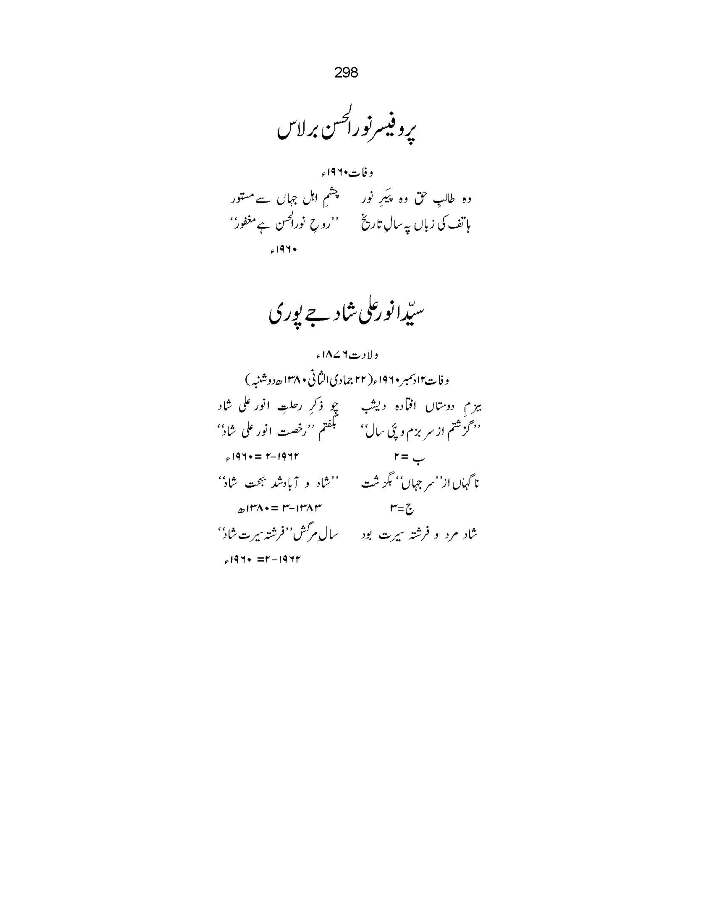 298
پروفیسر نورالحسن برلاس
وفات ۱۹۶۰ء
وہ طالبِ حق وہ پیکرِ نور چشمِ اہل جہاں سے مستور
ہاتف کی زباں پہ سالِ تاریخ ’’روحِ نورالحسن ہے مغفور‘‘
۱۹۶۰ء
سیّد انور علی شاد جے پوری
ولادت ۱۸۷۶ء
وفات ۱۲دسمبر ۱۹۶۰ء (۲۲ جمادی الثانی ۱۳۸۰ھ دوشنبہ)
بزمِ دوستاں افتادہ دیشب چو ذکرِ رحلتِ انور علی شاد
’’گزشتم از سر بزم و پئی سال‘‘ بگفتم ’’رخصت انور علی شاد‘‘
ب = ۲ ۱۹۶۲–۲ = ۱۹۶۰ء
ناگہاں از ’’سر جہاں‘‘ بگزشت ’’شاد و آبادشد بجنت شاد‘‘
ج=۳ ۱۳۸۳–۳ = ۱۳۸۰ھ
شاد مرد و فرشتہ سیرت بود سال مرگش ’’فرشتہ سیرت شاد‘‘
۱۹۶۲–۲= ۱۹۶۰ء